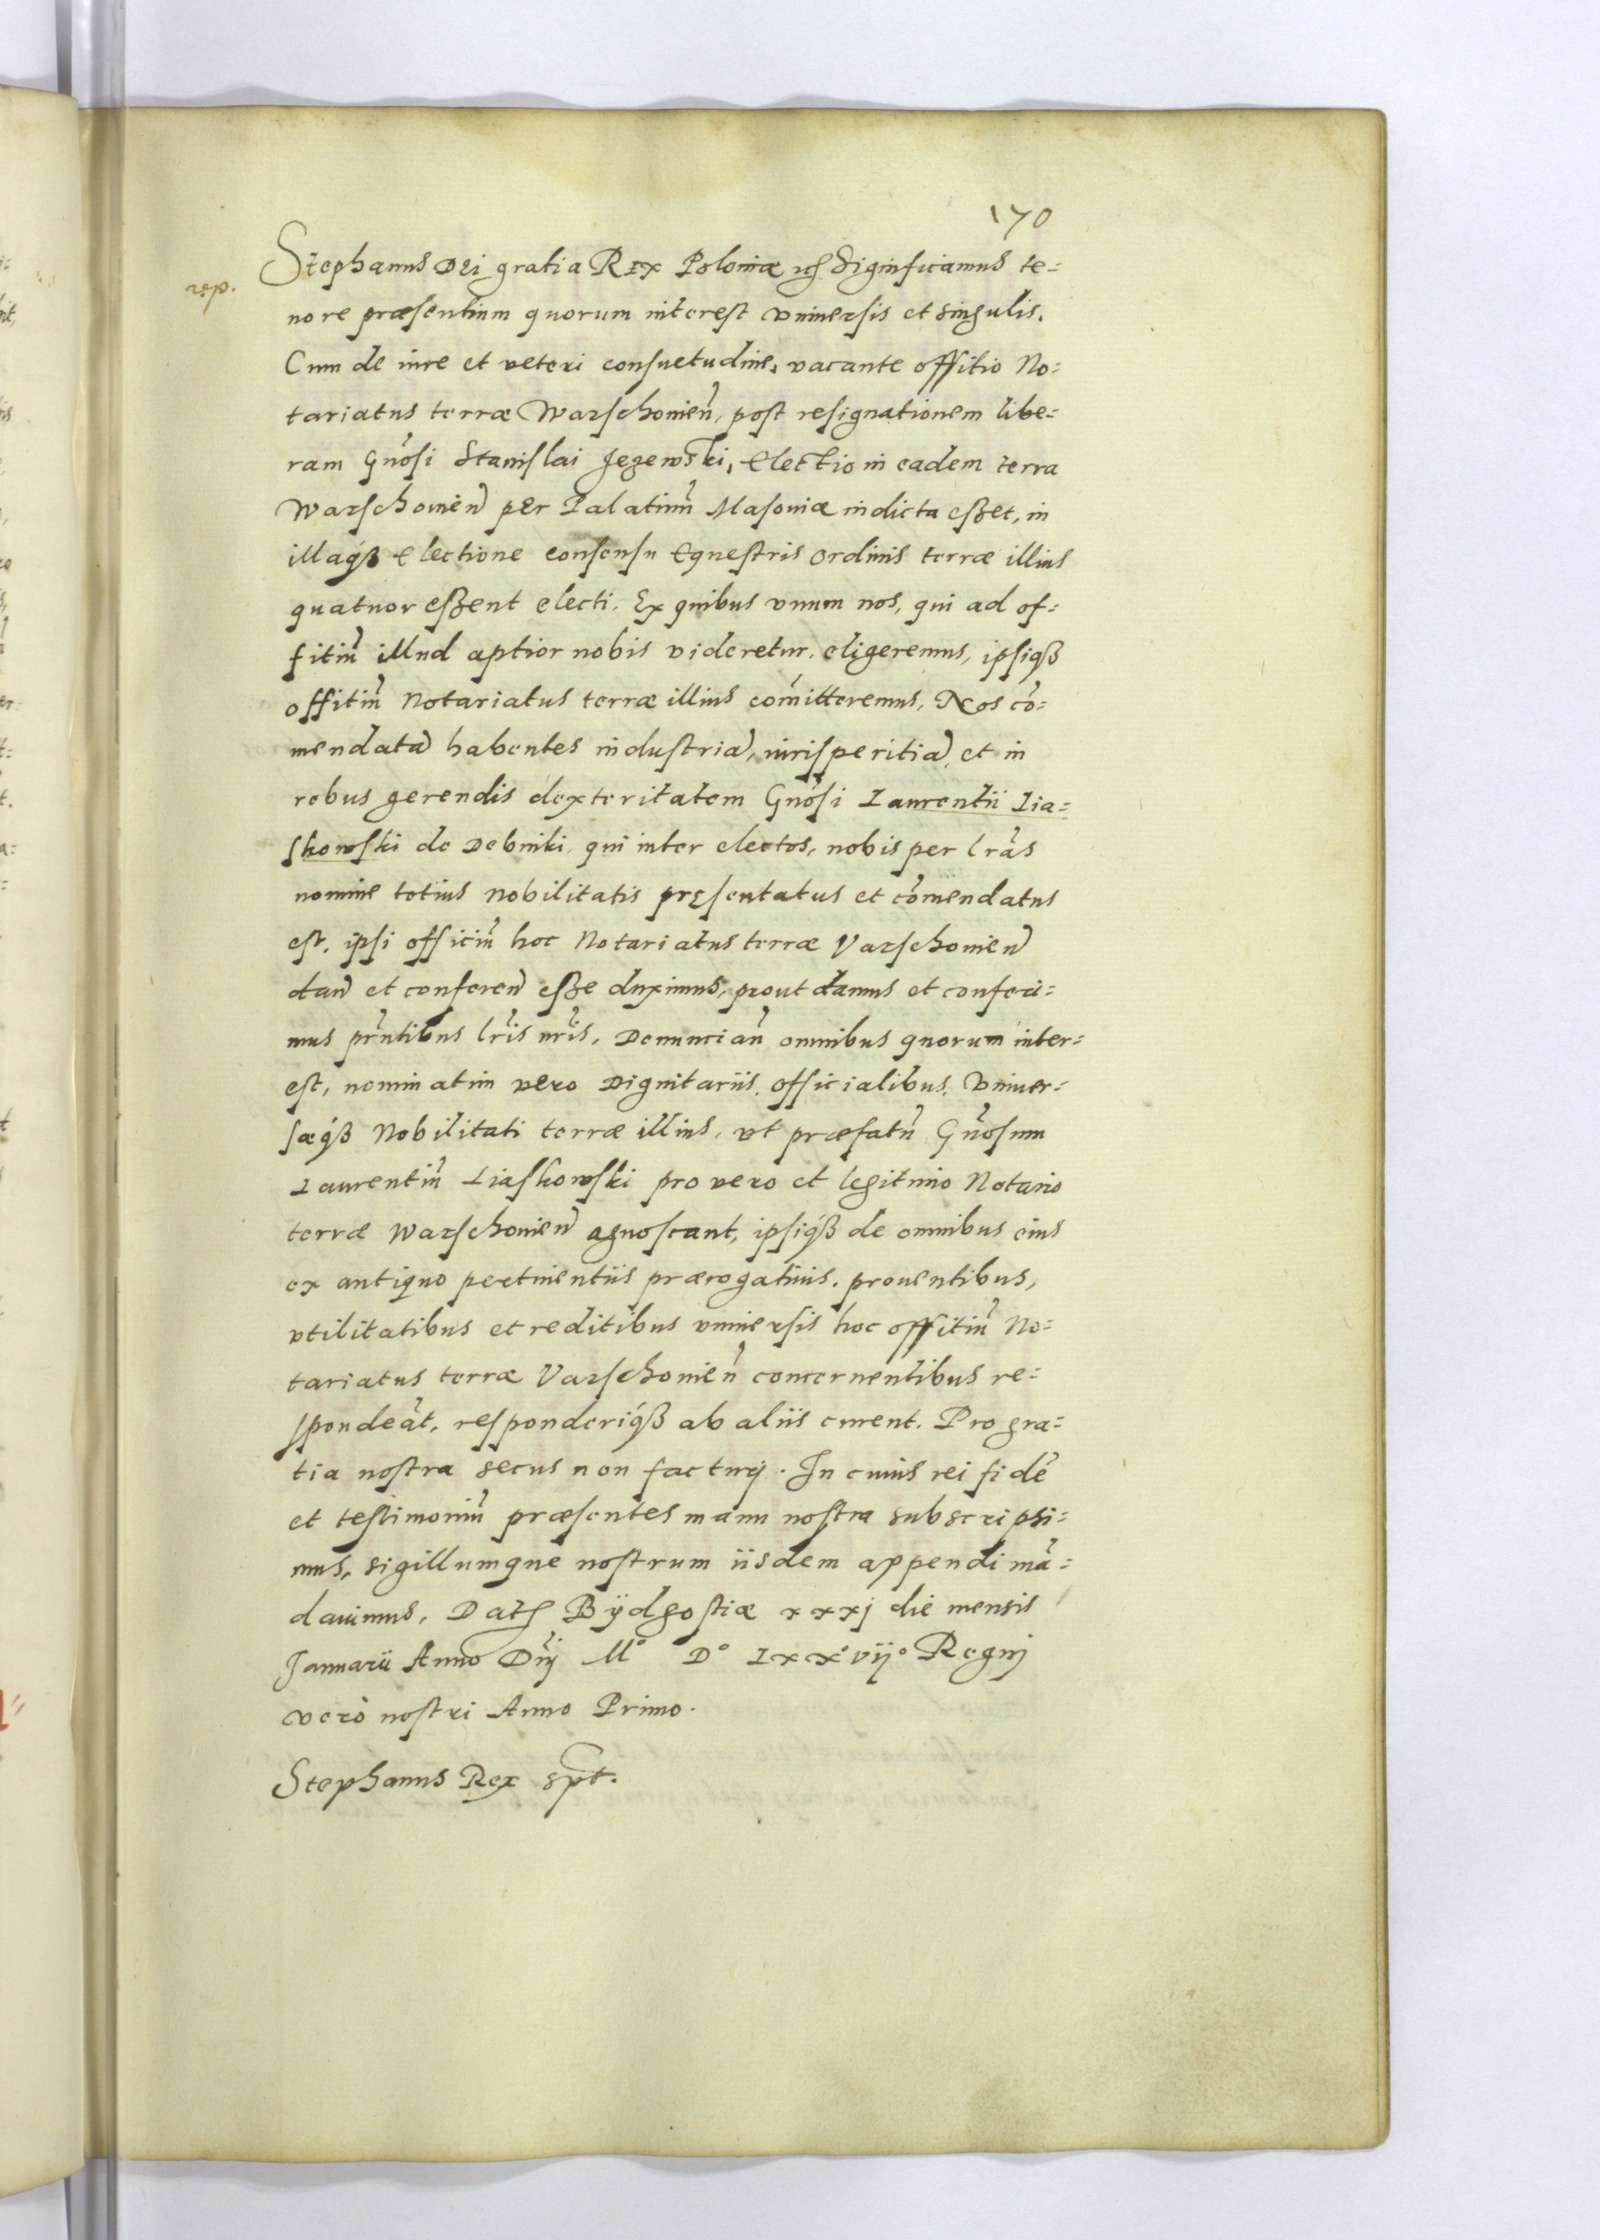 170
rep.
Stephanus Dei gratia Rex Poloniæ etc Significamus te=
nore præsentium quorum interest vniuersis et singulis.
Cum de iure et veteri consuetudine, vacante offitio No=
tariatus terræ Warschouien̄, post resignationem libe=
ram Gn̄osi Stanislai Jezewski, Electio in eadem terra
Warschouien̄ per Palatinū Masouiæ indicta eßet, in
illaq́ꝫ Electione consensu Equestris ordinis terræ illius
quatuor eßent electi. Ex quibus vnum nos, qui ad of=
fitiū illud aptior nobis videretur. eligeremus, ipsiq́ꝫ
offitiū Notariatus terræ illius com̄itteremus. Nos cō=
mendatā habentes industriā, iurisperitiā, et in
rebus gerendis dexteritatem Gn̄osi Laurentii Lia=
skowski de Debniki, qui inter electos, nobis per l̄ras
nomine totius Nobilitatis pręsentatus et cōmendatus
est. ipsi officiū hoc Notariatus terræ Varschouien̄
dan̄ et conferen̄ eße duximus, prout damus et conferi=
mus pn̄tibus l̄ris nr̄is. Denuncian̄ omnibus quorum inter=
est, nominatim vero Dignitariis. officialibus. Vniuer=
sæq́ꝫ Nobilitati terræ illius. vt præfatū Gn̄osum
Laurentiū Liaskowski pro vero et legitimo Notario
terræ Warschouien̄ agnoscant, ipsiq́ꝫ de omnibus eius
ex antiquo pertinentiis prærogatiuis. prouentibus,
vtilitatibus et reditibus vniuersis hoc offitiū No=
tariatus terræ Varschouien̄ concernentibus re=
spondeāt, responderiq́ꝫ ab aliis curent. Pro gra=
tia nostra secus non facturj. In cuius rei fidē
et testimoniū præsentes manu nostra subscripsi=
mus, sigillumque nostrum iisdem appendi mā=
dauimus. Dat Bÿdgostiæ xxxj die mensis
Januarii Anno Dn̄j M° D° Lxx°vij° Regnj
verò nostri Anno Primo.
Stephanus Rex spt.